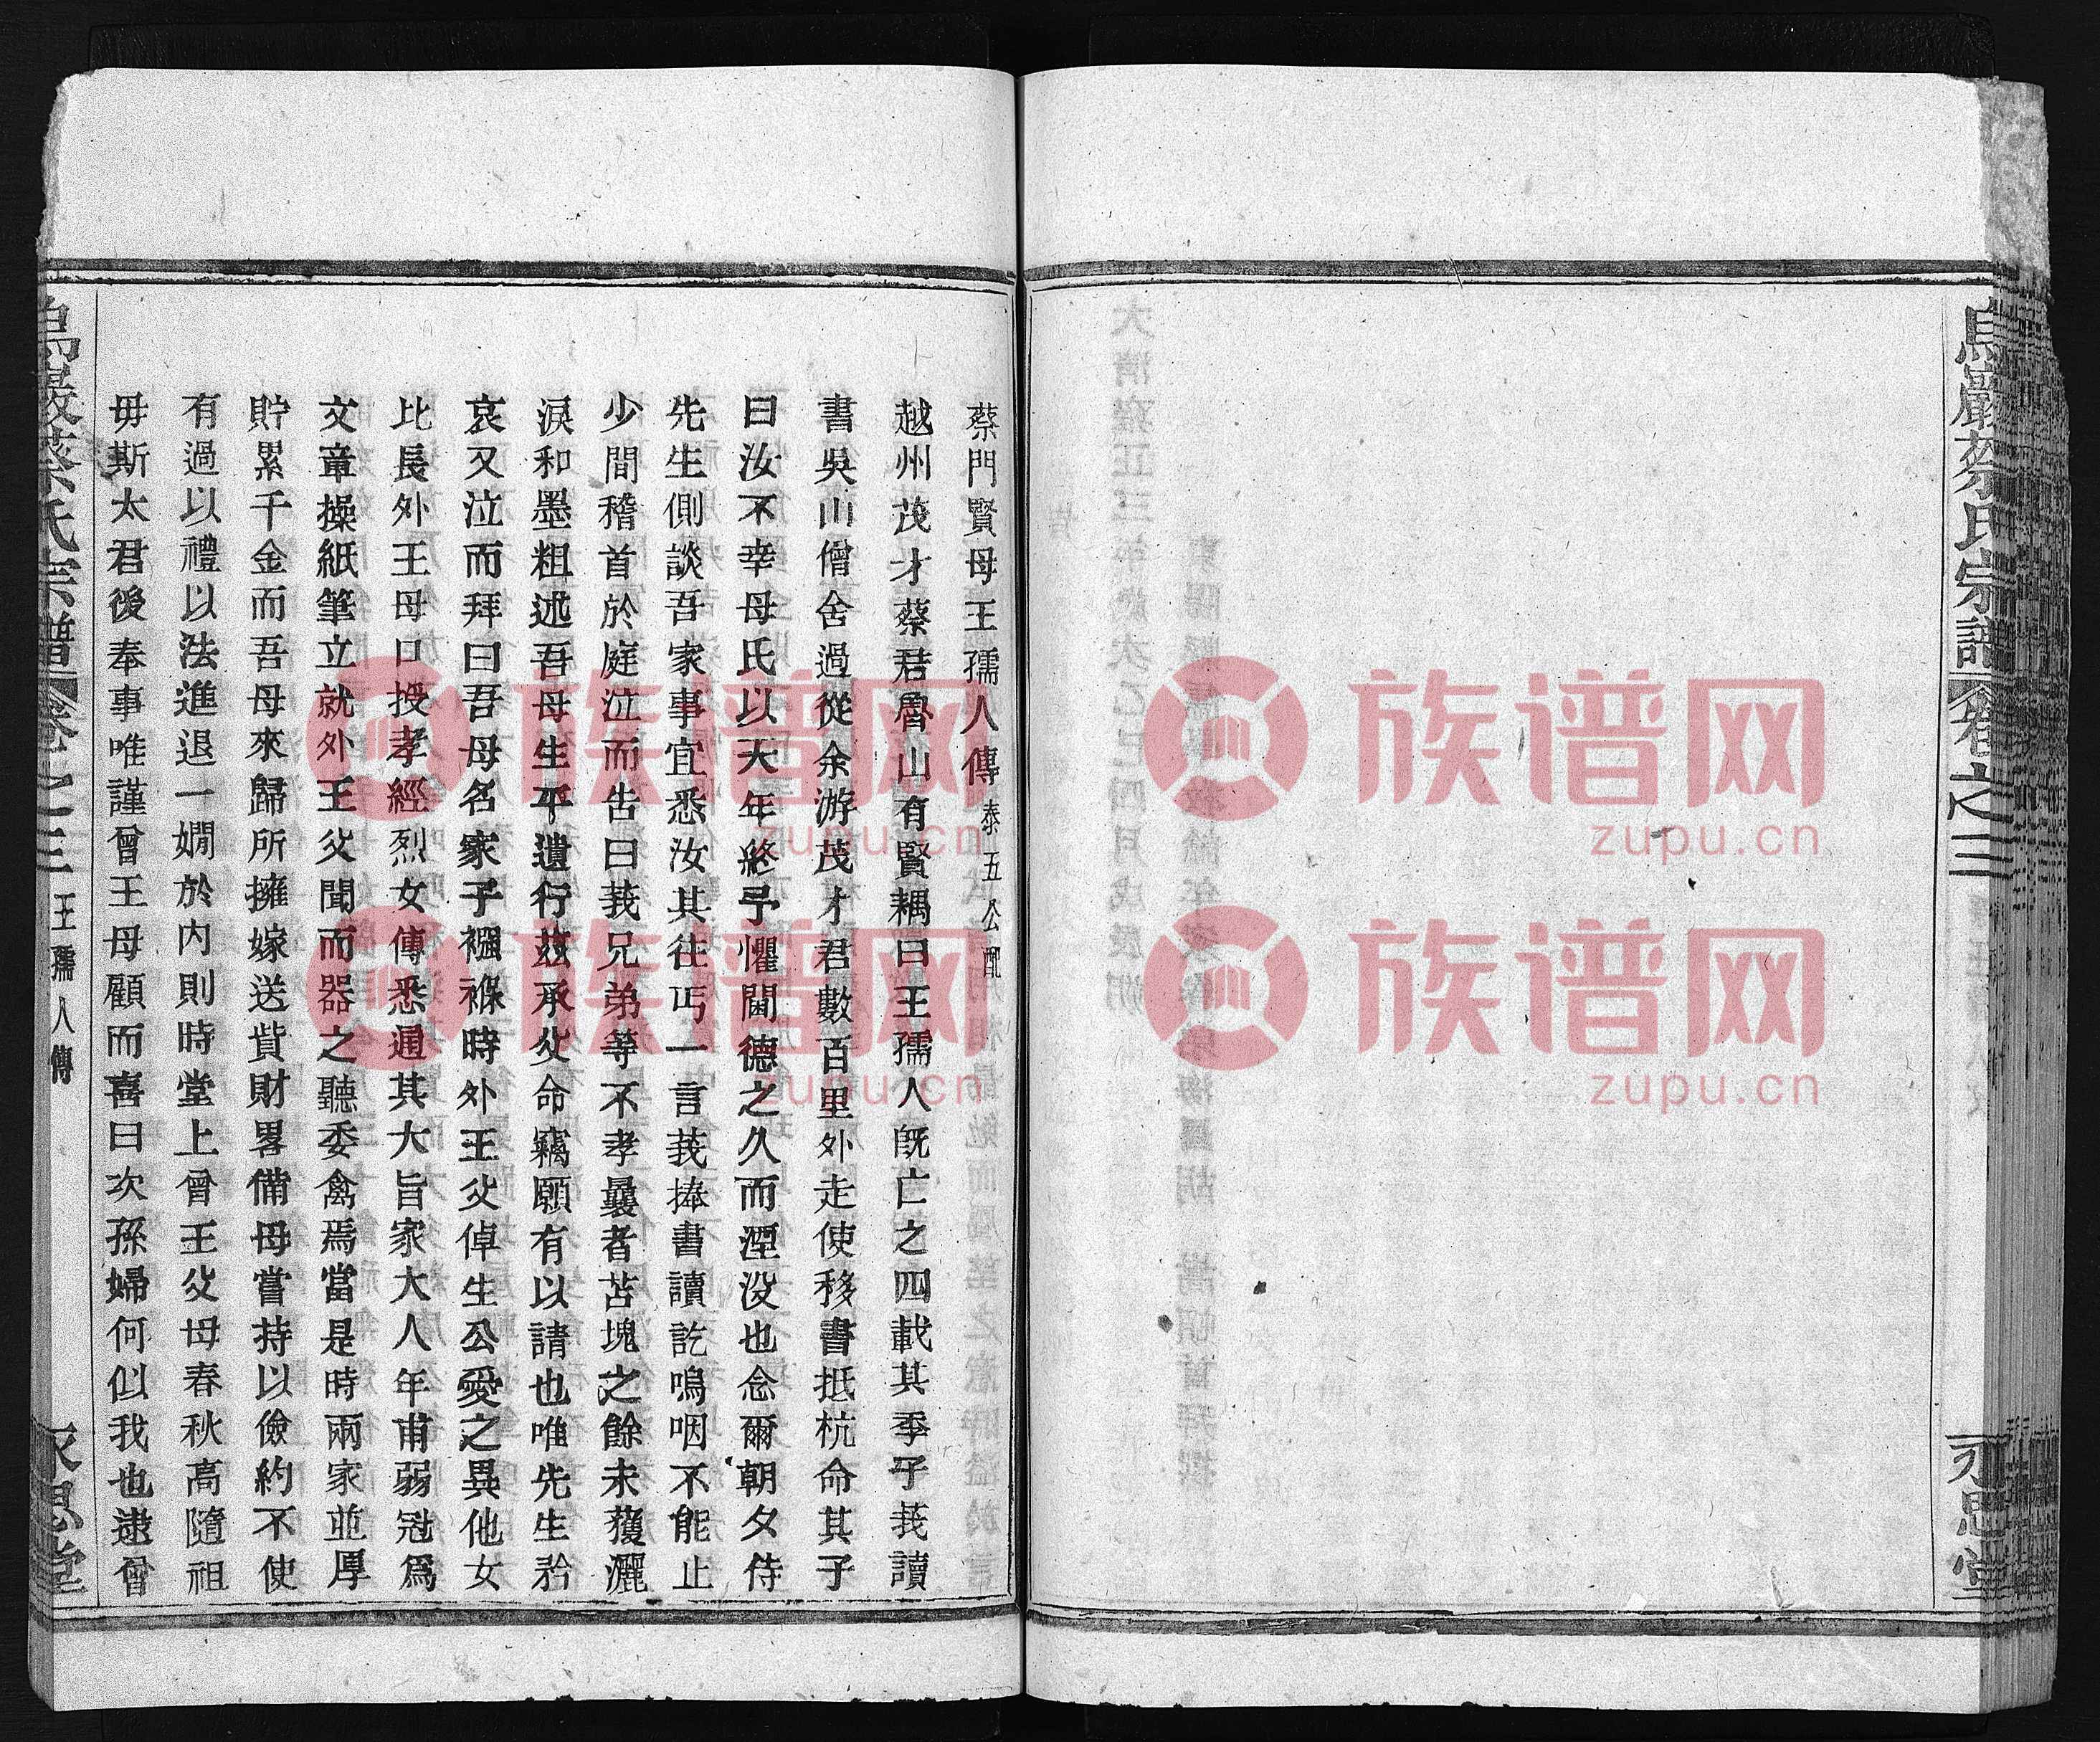 烏巖蔡氏宗譜 卷之三 永思堂
蔡門賢母王孺人傳 泰五公配
越州茂才蔡君魯山有賢耦曰王孺人旣亡之四載其季子莪讀
書吳山僧舍過從余游茂才君數百里外走使移書抵杭命其子
曰汝不幸母氏以天年終予懼閫德之久而湮没也念爾朝夕侍
先生側談吾家事宜悉汝其往丐一言莪捧書讀訖嗚咽不能止
少間稽首於庭泣而告曰莪兄弟等不孝曩者苫塊之餘未獲灑
淚和墨粗述吾母生平遺行茲承父命竊願有以請也唯先生矜
哀又泣而拜曰吾母名家子襁褓時外王父倬生公愛之異他女
比長外王母口授孝經烈女傳悉通其大旨家大人年甫弱冠爲
文章操紙筆立就外王父聞而器之聽委禽焉當是時兩家並厚
貯累千金而吾母來歸所擁嫁送貲財畧備母嘗持以儉約不使
有過以禮以法進退一嫺於内則時堂上曾王父母春秋高隨祖
毋斯太君後奉事唯謹曾王母顧而喜曰次孫婦何似我也逮曾
烏巖蔡氏宗譜 卷之三 王孺人傳 永思堂
族谱网
zupu.cn
族谱网
zupu.cn
族谱网
zupu.cn
族谱网
zupu.cn